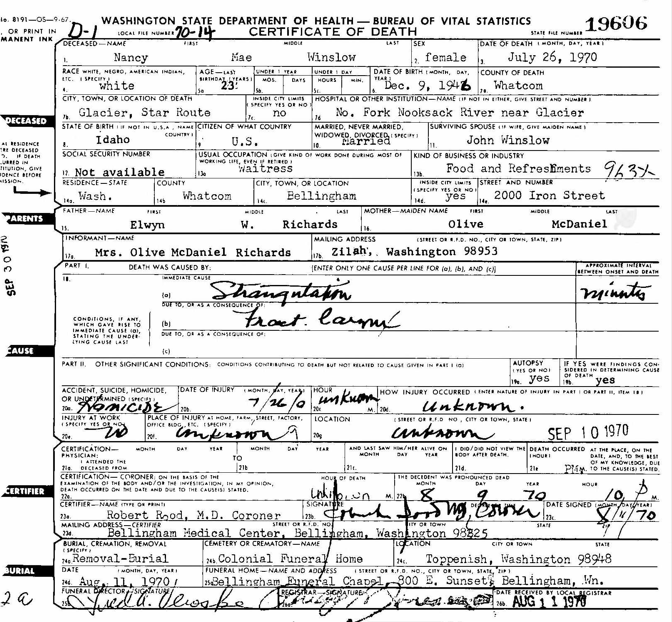 lo. 8191—OS—9-67.
WASHINGTON STATE DEPARTMENT OF HEALTH — BUREAU OF VITAL STATISTICS
, OR PRINT IN
MANENT INK
D-1
LOCAL FILE NUMBER 70-14
CERTIFICATE OF DEATH
STATE FILE NUMBER
19606
DECEASED—NAME FIRST MIDDLE LAST SEX DATE OF DEATH (MONTH, DAY, YEAR)
1. Nancy Mae Winslow 2. female 3. July 26, 1970
RACE WHITE, NEGRO, AMERICAN INDIAN, ETC. (SPECIFY) AGE—LAST BIRTHDAY (YEARS) UNDER 1 YEAR MOS. DAYS UNDER 1 DAY HOURS MIN. DATE OF BIRTH (MONTH, DAY, YEAR) COUNTY OF DEATH
4. white 5a. 23 5b. 5c. 6. Dec. 9, 1946 7a. Whatcom
CITY, TOWN, OR LOCATION OF DEATH INSIDE CITY LIMITS (SPECIFY YES OR NO) HOSPITAL OR OTHER INSTITUTION—NAME (IF NOT IN EITHER, GIVE STREET AND NUMBER)
7b. Glacier, Star Route 7c. no 7d. No. Fork Nooksack River near Glacier
DECEASED
STATE OF BIRTH (IF NOT IN U.S.A., NAME COUNTRY) CITIZEN OF WHAT COUNTRY MARRIED, NEVER MARRIED, WIDOWED, DIVORCED (SPECIFY) SURVIVING SPOUSE (IF WIFE, GIVE MAIDEN NAME)
8. Idaho 9. U.S. 10. married 11. John Winslow
SOCIAL SECURITY NUMBER USUAL OCCUPATION (GIVE KIND OF WORK DONE DURING MOST OF WORKING LIFE, EVEN IF RETIRED) KIND OF BUSINESS OR INDUSTRY
12. Not available 13a. waitress 13b. Food and Refreshments
RESIDENCE—STATE COUNTY CITY, TOWN, OR LOCATION INSIDE CITY LIMITS (SPECIFY YES OR NO) STREET AND NUMBER
14a. Wash. 14b. Whatcom 14c. Bellingham 14d. yes 14e. 2000 Iron Street
PARENTS
FATHER—NAME FIRST MIDDLE LAST MOTHER—MAIDEN NAME FIRST MIDDLE LAST
15. Elwyn W. Richards 16. Olive McDaniel
INFORMANT—NAME MAILING ADDRESS (STREET OR R.F.D. NO., CITY OR TOWN, STATE, ZIP)
17a. Mrs. Olive McDaniel Richards 17b. Zilah, Washington 98953
SEP 30 1970
PART I. DEATH WAS CAUSED BY: [ENTER ONLY ONE CAUSE PER LINE FOR (a), (b), AND (c)] APPROXIMATE INTERVAL BETWEEN ONSET AND DEATH
18. IMMEDIATE CAUSE
(a) Strangulation minutes
DUE TO, OR AS A CONSEQUENCE OF:
CONDITIONS, IF ANY, WHICH GAVE RISE TO IMMEDIATE CAUSE (a), STATING THE UNDERLYING CAUSE LAST
(b) Fract. Larynx
DUE TO, OR AS A CONSEQUENCE OF:
(c)
CAUSE
PART II. OTHER SIGNIFICANT CONDITIONS: CONDITIONS CONTRIBUTING TO DEATH BUT NOT RELATED TO CAUSE GIVEN IN PART I (a) AUTOPSY (YES OR NO) IF YES WERE FINDINGS CONSIDERED IN DETERMINING CAUSE OF DEATH
19a. yes 19b. yes
ACCIDENT, SUICIDE, HOMICIDE, OR UNDETERMINED (SPECIFY) DATE OF INJURY (MONTH, DAY, YEAR) HOUR HOW INJURY OCCURRED (ENTER NATURE OF INJURY IN PART I OR PART II, ITEM 18)
20a. Homicide 20b. 7/26/0 20c. unknown M. 20d. Unknown.
INJURY AT WORK (SPECIFY YES OR NO) PLACE OF INJURY AT HOME, FARM, STREET, FACTORY, OFFICE BLDG., ETC. (SPECIFY) LOCATION (STREET OR R.F.D. NO., CITY OR TOWN, STATE)
20e. no 20f. Unknown 20g. Unknown SEP 10 1970
CERTIFICATION—PHYSICIAN: MONTH DAY YEAR MONTH DAY YEAR AND LAST SAW HIM/HER ALIVE ON MONTH DAY YEAR I DID/DID NOT VIEW THE BODY AFTER DEATH. DEATH OCCURRED (HOUR) AT THE PLACE, ON THE DATE, AND, TO THE BEST OF MY KNOWLEDGE, DUE TO THE CAUSE(S) STATED.
I ATTENDED THE DECEASED FROM
21a. TO 21b. 21c. 21d. 21e.
CERTIFIER
CERTIFICATION—CORONER: ON THE BASIS OF THE EXAMINATION OF THE BODY AND/OR THE INVESTIGATION, IN MY OPINION, DEATH OCCURRED ON THE DATE AND DUE TO THE CAUSE(S) STATED. HOUR OF DEATH MONTH DAY YEAR HOUR
22a. Unknown M. 22b. 8 9 70 10 P M.
CERTIFIER—NAME (TYPE OR PRINT) SIGNATURE DATE SIGNED (MONTH, DAY, YEAR)
23a. Robert Rood, M.D. Coroner 23b. Coroner 23c. 8/11/70
MAILING ADDRESS—CERTIFIER STREET OR R.F.D. NO. CITY OR TOWN STATE ZIP
23d. Bellingham Medical Center, Bellingham, Washington 98225
BURIAL, CREMATION, REMOVAL (SPECIFY) CEMETERY OR CREMATORY—NAME LOCATION CITY OR TOWN STATE
24a. Removal-Burial 24b. Colonial Funeral Home 24c. Toppenish, Washington 98948
BURIAL
DATE (MONTH, DAY, YEAR) FUNERAL HOME—NAME AND ADDRESS (STREET OR R.F.D. NO., CITY OR TOWN, STATE, ZIP)
24d. Aug. 11, 1970 25a. Bellingham Funeral Chapel, 800 E. Sunset, Bellingham, Wn.
FUNERAL DIRECTOR—SIGNATURE REGISTRAR—SIGNATURE DATE RECEIVED BY LOCAL REGISTRAR
25b. 26a. 26b. AUG 11 1970
2a